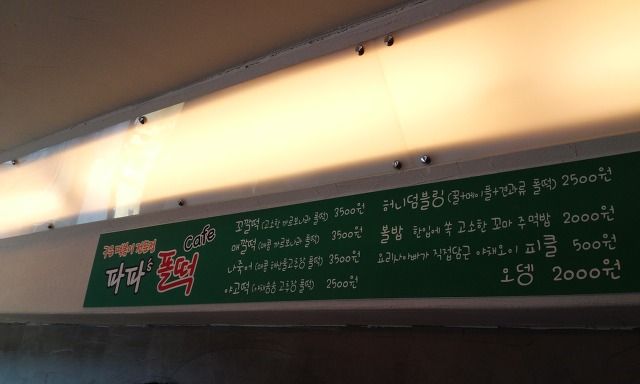 파파's 폴떡 cafe
꼬깔떡 (고소한 까르보나라 폴떡) 3500원
매깔떡 (매콤 까르보나라 폴떡) 3500원
나죽어 (매콤 해산물고추장 폴떡) 3500원
야고떡 (야채송송 고추장 폴떡) 2500원
허니덤블링 (꿀+메이플+견과류 폴떡) 2500원
볼밥 한입에 쏙 고소한 꼬마 주먹밥 2000원
요리사아빠가 직접담근 야채오이 피클 500원
오뎅 2000원